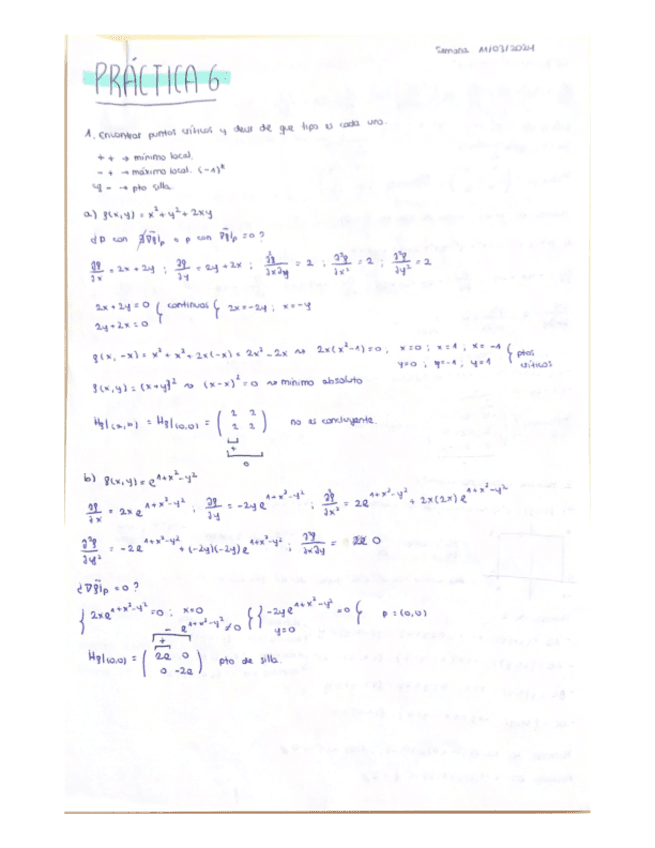 Semana 11/03/2024
PRÁCTICA 6
1. Encontrar puntos críticos y decir de que tipo es cada uno.
+ + → mínimo local.
- + → máximo local. (-1)ᵏ
- → pto silla
a) f(x,y) = x² + y² + 2xy
¿P con ∄∇f|p o p con ∇f|p = 0?
∂f/∂x = 2x + 2y ; ∂f/∂y = 2y + 2x ; ∂²f/∂x∂y = 2 ; ∂²f/∂x² = 2 ; ∂²f/∂y² = 2
2x + 2y = 0 } continuas { 2x = -2y ; x = -y
2y + 2x = 0
f(x, -x) = x² + x² + 2x(-x) = 2x² - 2x ⇝ 2x(x² - 1) = 0 ; x = 0 ; x = 1 ; x = -1 } ptos
y = 0 ; y = -1 ; y = 1 críticos
f(x,y) = (x+y)² ⇝ (x-x)² = 0 ⇝ mínimo absoluto
Hf|(0,0) = ( 2 2
2 2 ) no es concluyente.
+
0
b) f(x,y) = e^(1+x²-y²)
∂f/∂x = 2x e^(1+x²-y²) ; ∂f/∂y = -2y e^(1+x²-y²) ; ∂²f/∂x² = 2e^(1+x²-y²) + 2x(2x) e^(1+x²-y²)
∂²f/∂y² = -2e^(1+x²-y²) + (-2y)(-2y) e^(1+x²-y²) ; ∂²f/∂x∂y = 0
¿∇f|p = 0?
{ 2xe^(1+x²-y²) = 0 ; x = 0 { } -2ye^(1+x²-y²) = 0 { p = (0,0)
e^(1+x²-y²) ≠ 0 y = 0
- +
Hf|(0,0) = ( 2e 0
0 -2e ) pto de silla.